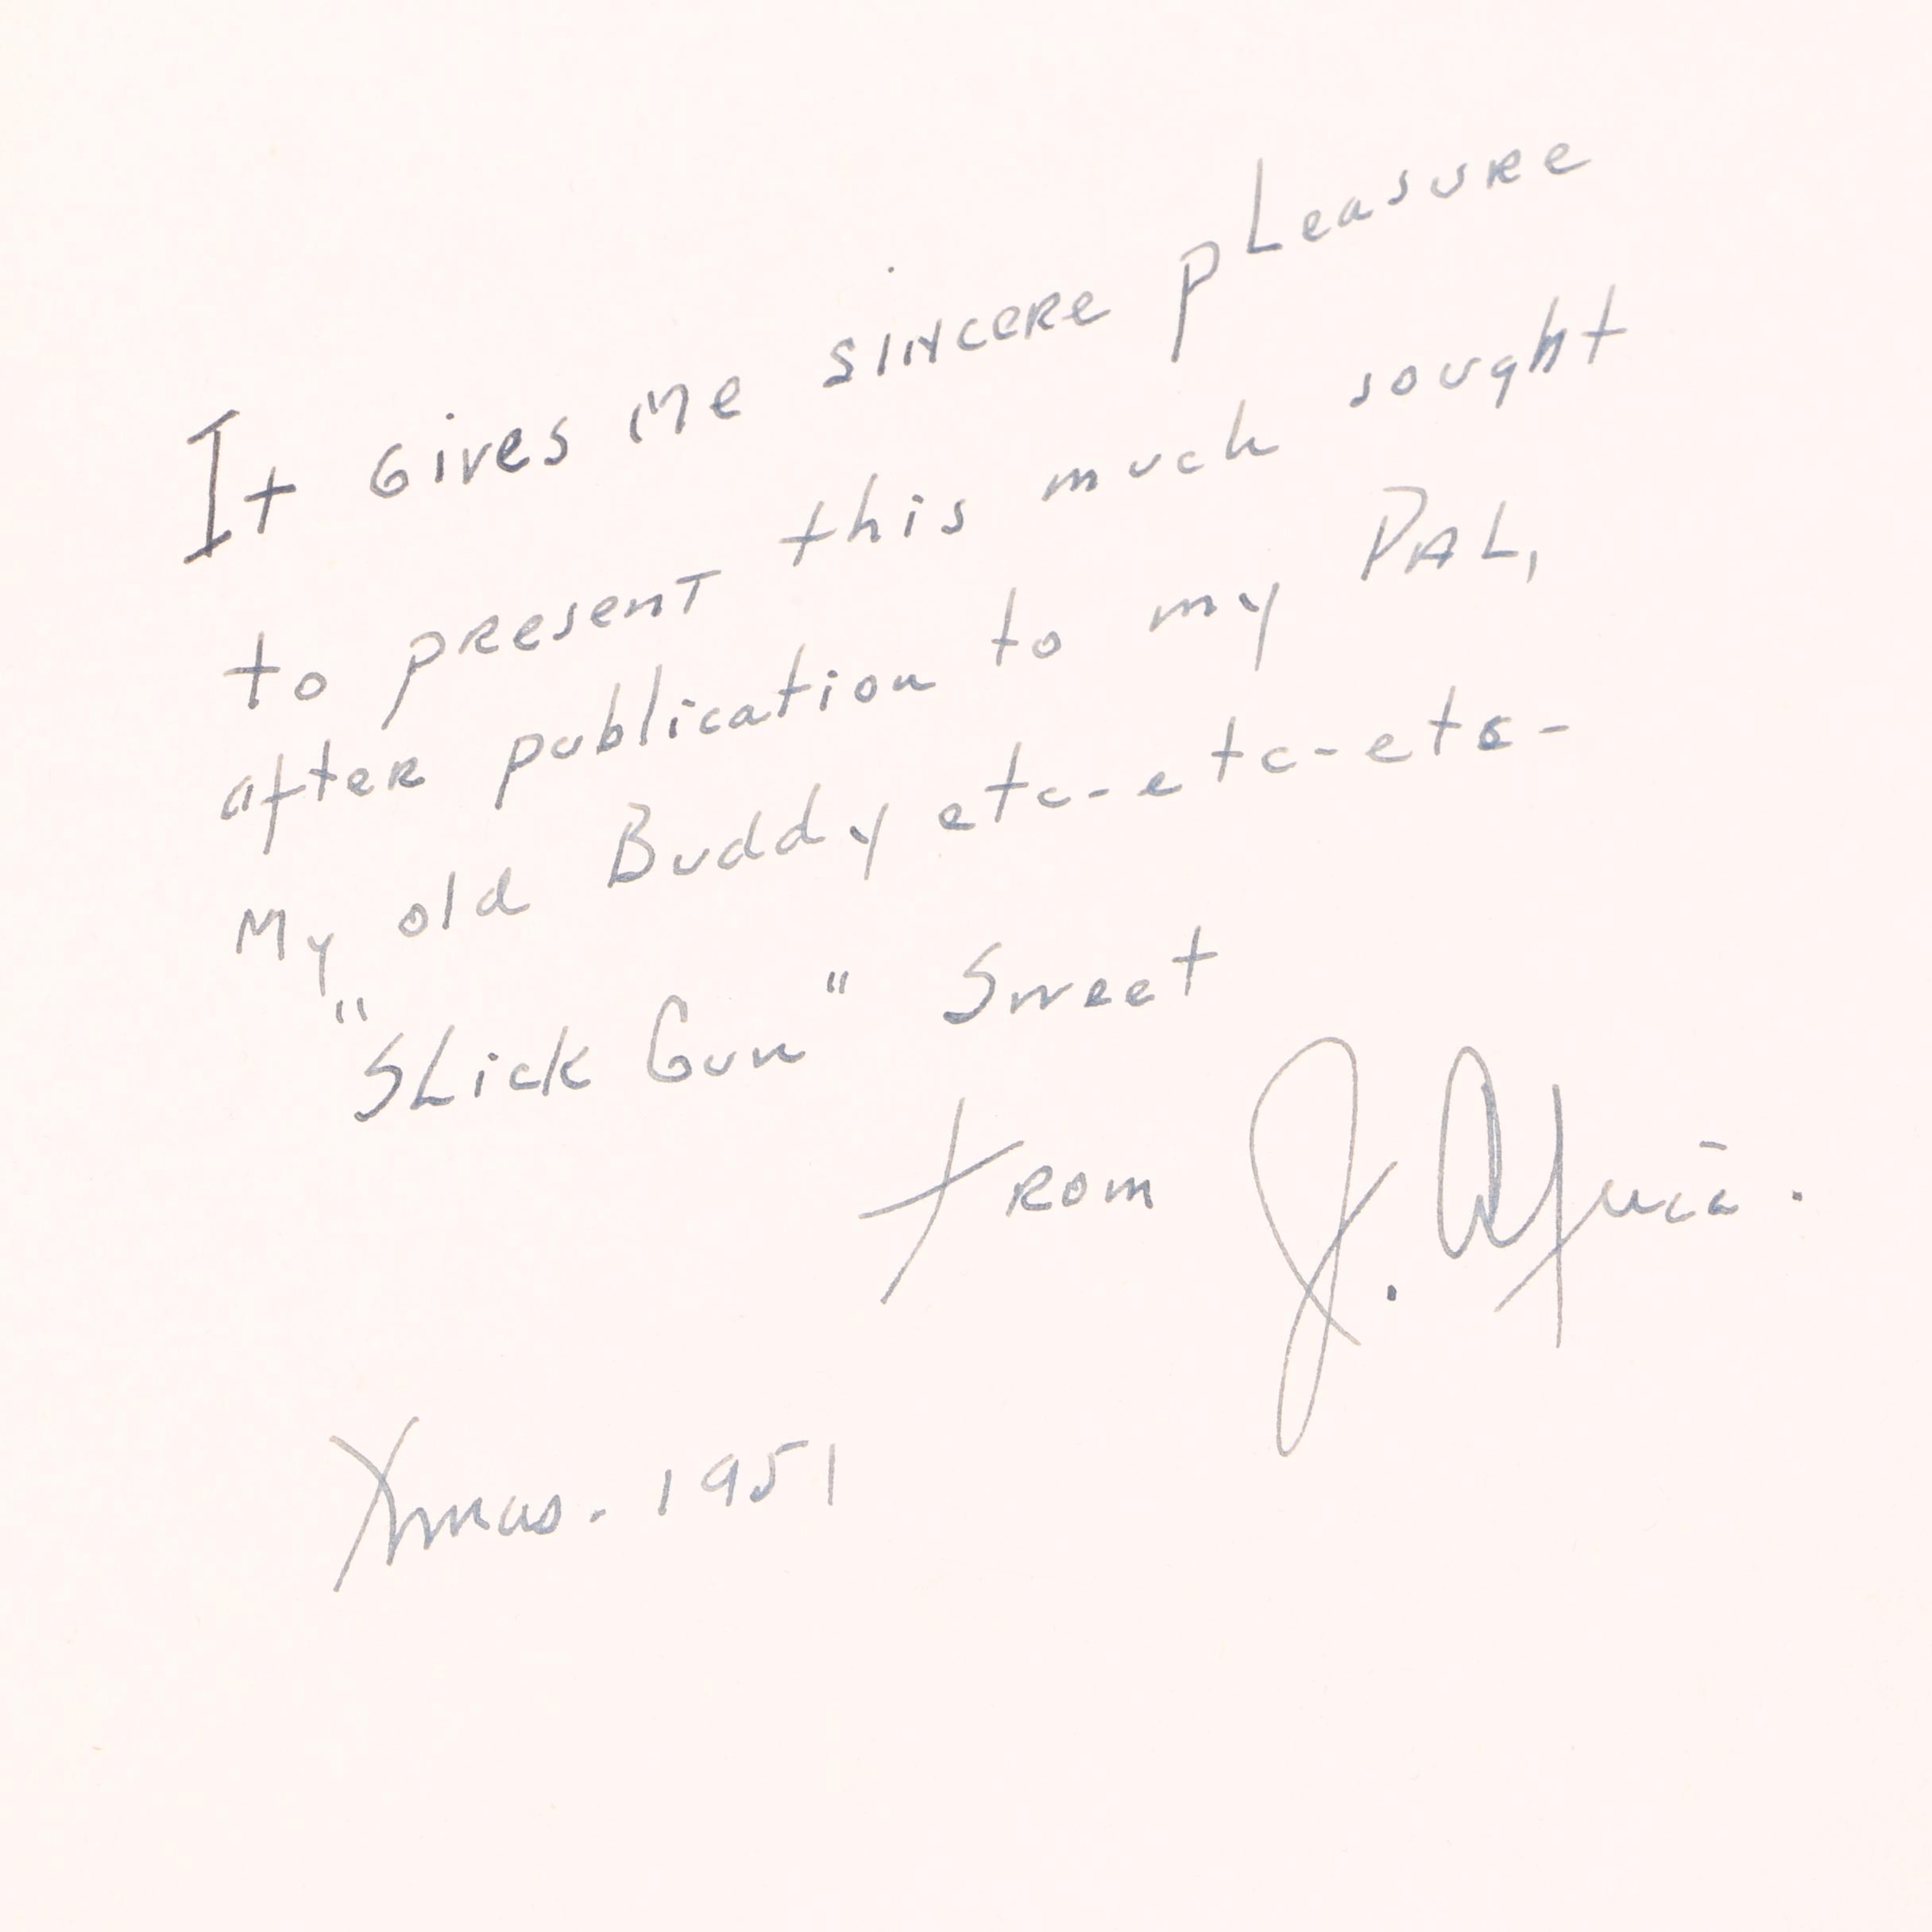 It Gives me sincere pLeasure
to present this much sought
after publication to my PAL,
My old Buddy etc-etc-etc-
"SLick Gun" Sweet
from J. Africa.
Xmas. 1951